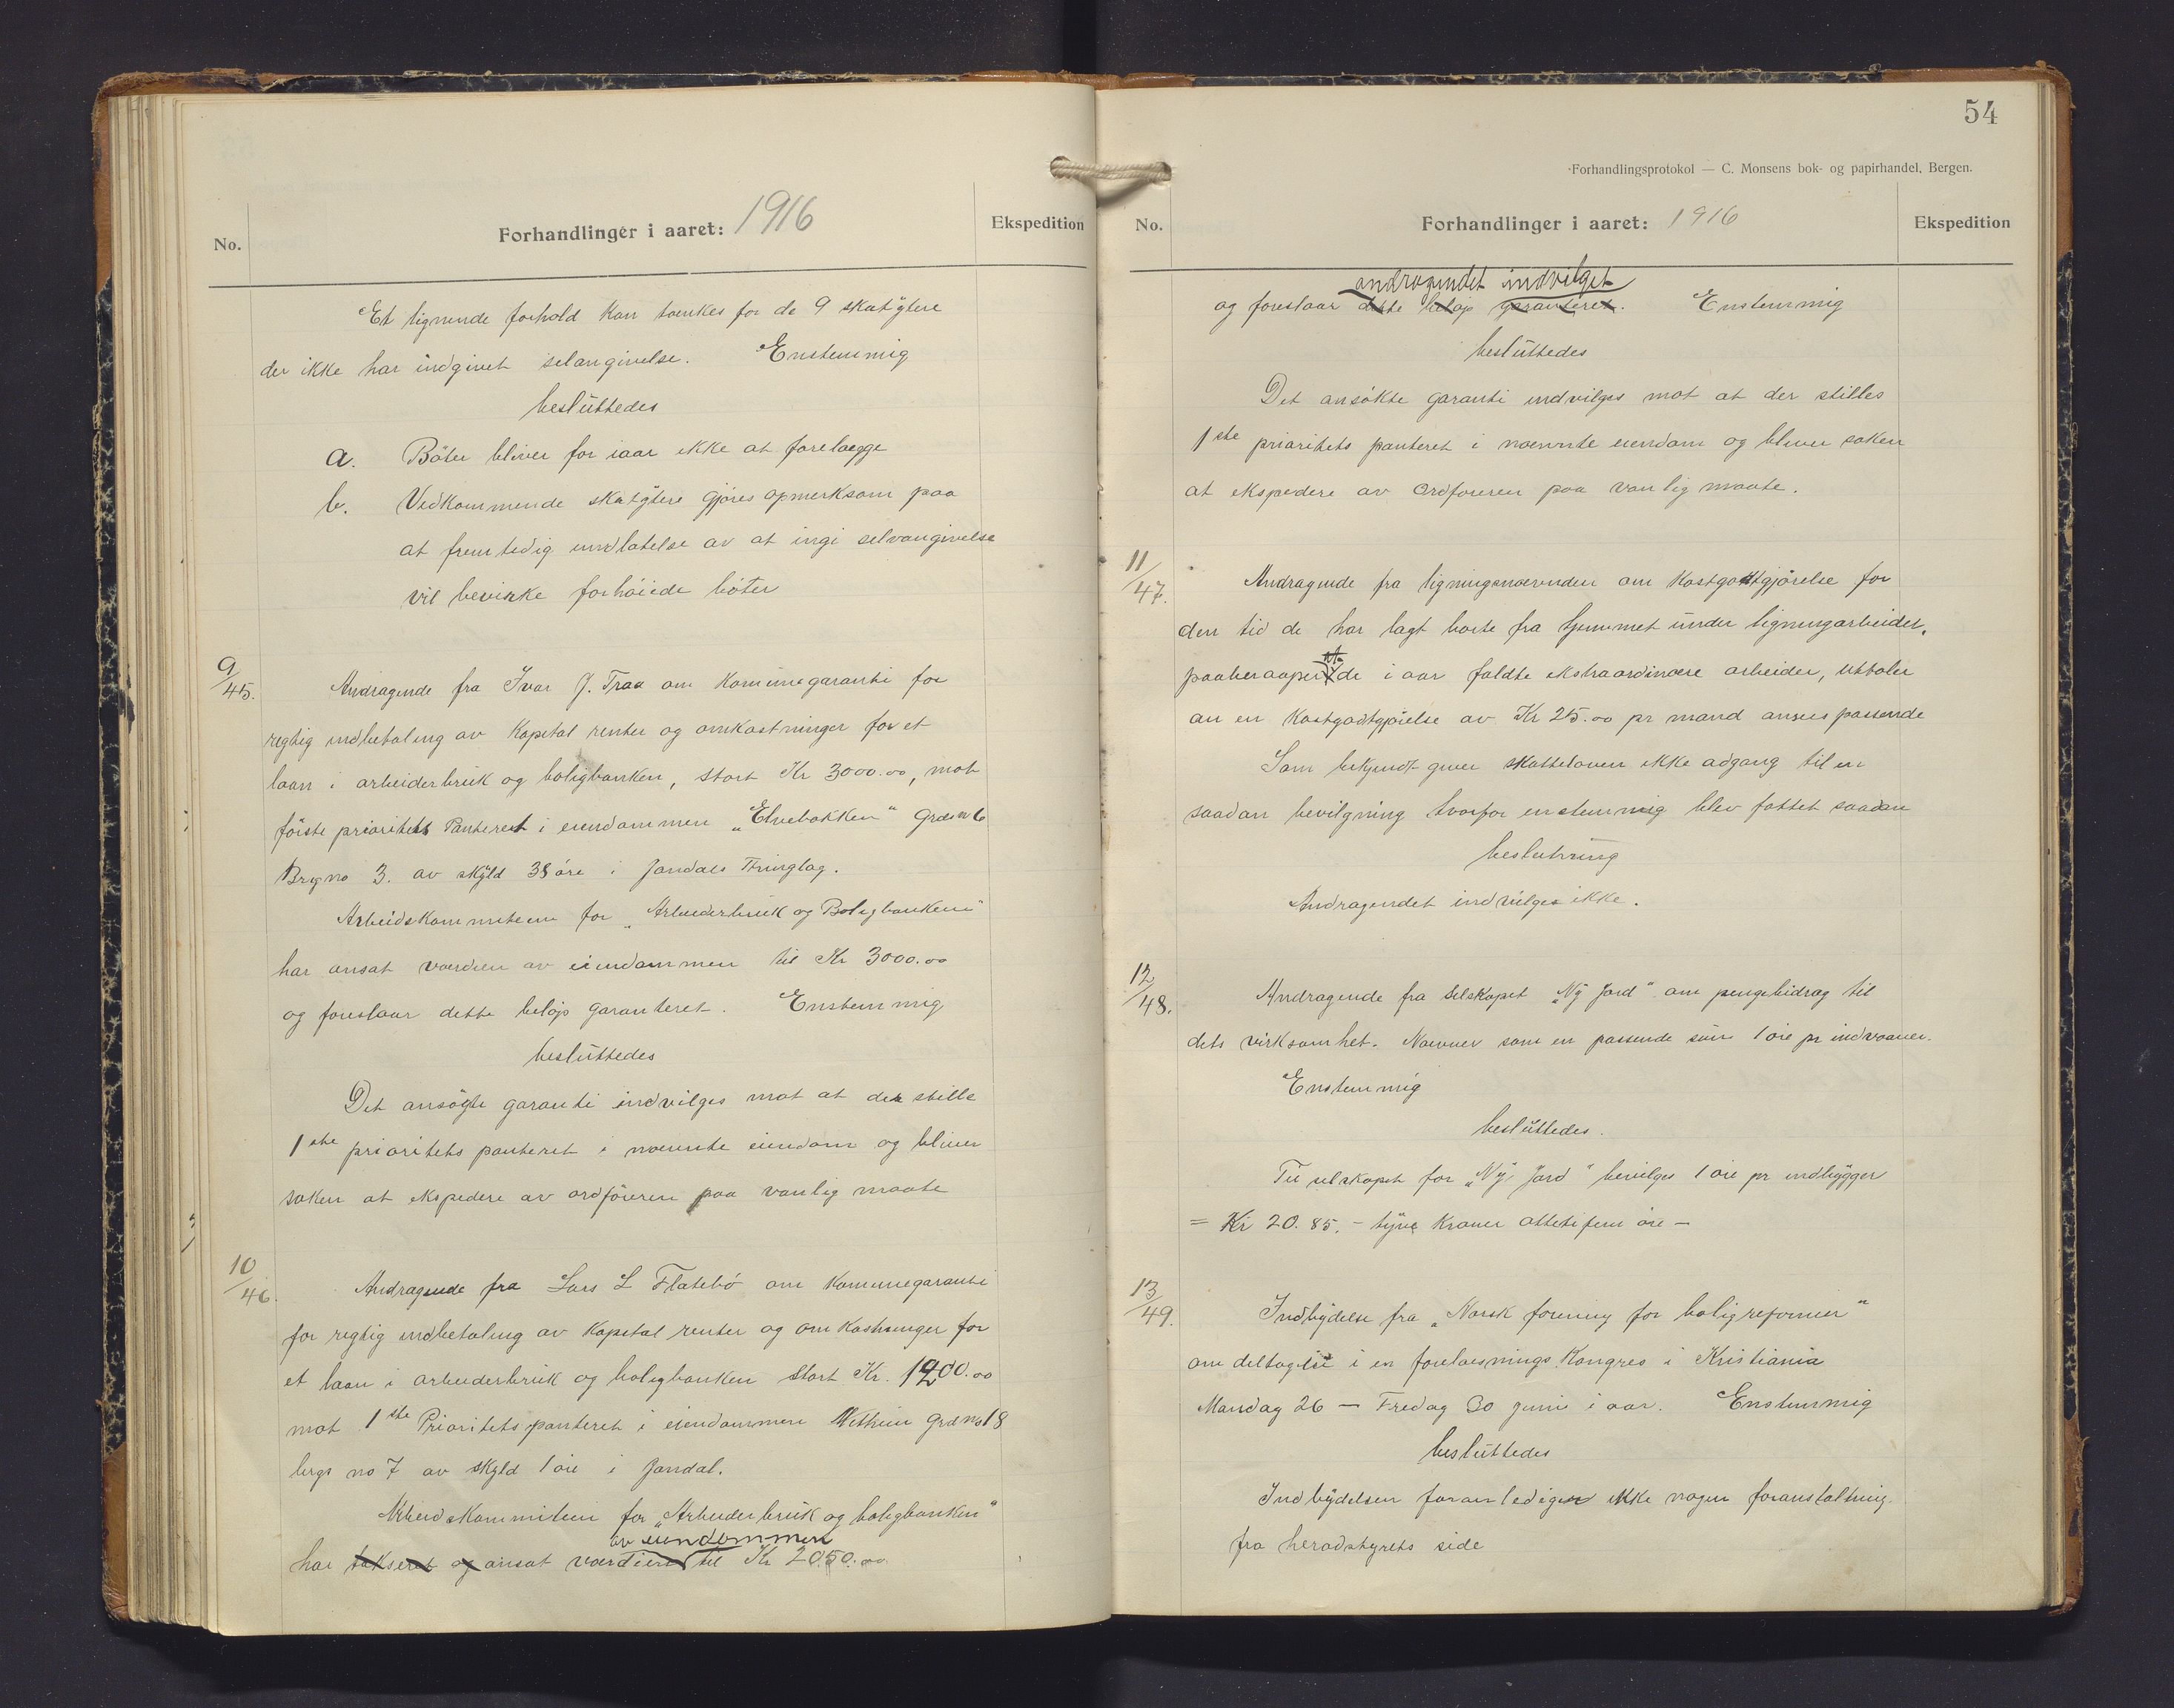 No.
Forhandlinger i aaret: 1916
Ekspedition
Et lignende forhold kan tænkes for de 9 skatÿtere
der ikke har indgivet selangivelse. Enstemmig
besluttedes
a. Böter bliver for iaar ikke at forelægge
b. Vedkommende skatÿtere gjöres opmerksom paa
at fremtidig undlatelse av at ingi selvangivelse
vil bevirke forhöiede böter
9/45. Andragende fra Ivar J. Traa om Komunegaranti for
regtig indbetaling av Kapital renter og omkostninger for et
laan i arbeiderbruk og boligbanken, stort Kr 3000.00, mot
förste prioritets Panteret i eiendommen „Elvebakken" Grds no 6
Brgs no 3. av skÿld 38 öre i Jondals Thinglag.
Arbeidskommiteen for „Arbeiderbruk og Boligbanken"
har ansat værdien av eiendommen til Kr 3000.00
og foreslaar dette belöp garanteret. Enstemmig
besluttedes
Det ansögte garanti indvilges mot at der stille
1ste prioritets panteret i nævnte eiendom og bliver
saken at ekspedere av ordföreren paa vanlig maate
10/46. Andragende fra Lars L Flatebö om Komunegaranti
for regtig indbetaling av Kapital renter og omkostninger for
et laan i arbeiderbruk og boligbanken stort Kr. 1200.00
mot 1ste Prioritets panteret i eiendommen Grds no 18
brgs no 7 av skyld 1 öre i Jondal.
Arbeidskommiteen for „Arbeiderbruk og boligbanken"
av eiendommen
har takseret og ansat værdien til Kr 2050.00
54
Forhandlingsprotokol — C. Monsens bok- og papirhandel, Bergen.
No.
Forhandlinger i aaret: 1916
Ekspedition
andragendet indvilget
og foreslaar dette belöp garanteret. Enstemmig
besluttedes
Det ansökte garanti indvilges mot at der stilles
1ste prioritets panteret i nævnte eiendom og bliver saken
at ekspedere av Ordföreren paa vanlig maate.
11/47. Andragende fra ligningsnævnden om Kostgodtgjörelse for
den tid de har lagt borte fra hjemmet under ligningarbeidet,
paaberaaper de i aar faldte ekstraordinære arbeider, uttaler
an en Kostgodtgjörelse av Kr 25.00 pr mand ansees passende
Som bekjendt giver skatteloven ikke adgang til en
saadan bevilgning hvorfor enstemmig blev fattet saadan
beslutning
Andragendet indvilges ikke.
12/48. Andragende fra Selskapet „Nÿ Jord" om pengebidrag til
dets virksomhet. Nævner som en passende sum 1 öre pr indvaaner.
Enstemmig
besluttedes.
Til selskapet for „Nÿ Jord" bevilges 1 öre pr indbygger
= Kr 20.85. – tÿve Kroner ottetifem öre –
13/49. Indbÿdelse fra „Norsk forening for boligreformer"
om deltagelse i en forelæsnings Kongres i Kristiania
Mandag 26 — Fredag 30 juni i aar. Enstemmig
besluttedes
Indbÿdelsen foranlediger ikke nogen foranstaltning
fra heradstyrets side